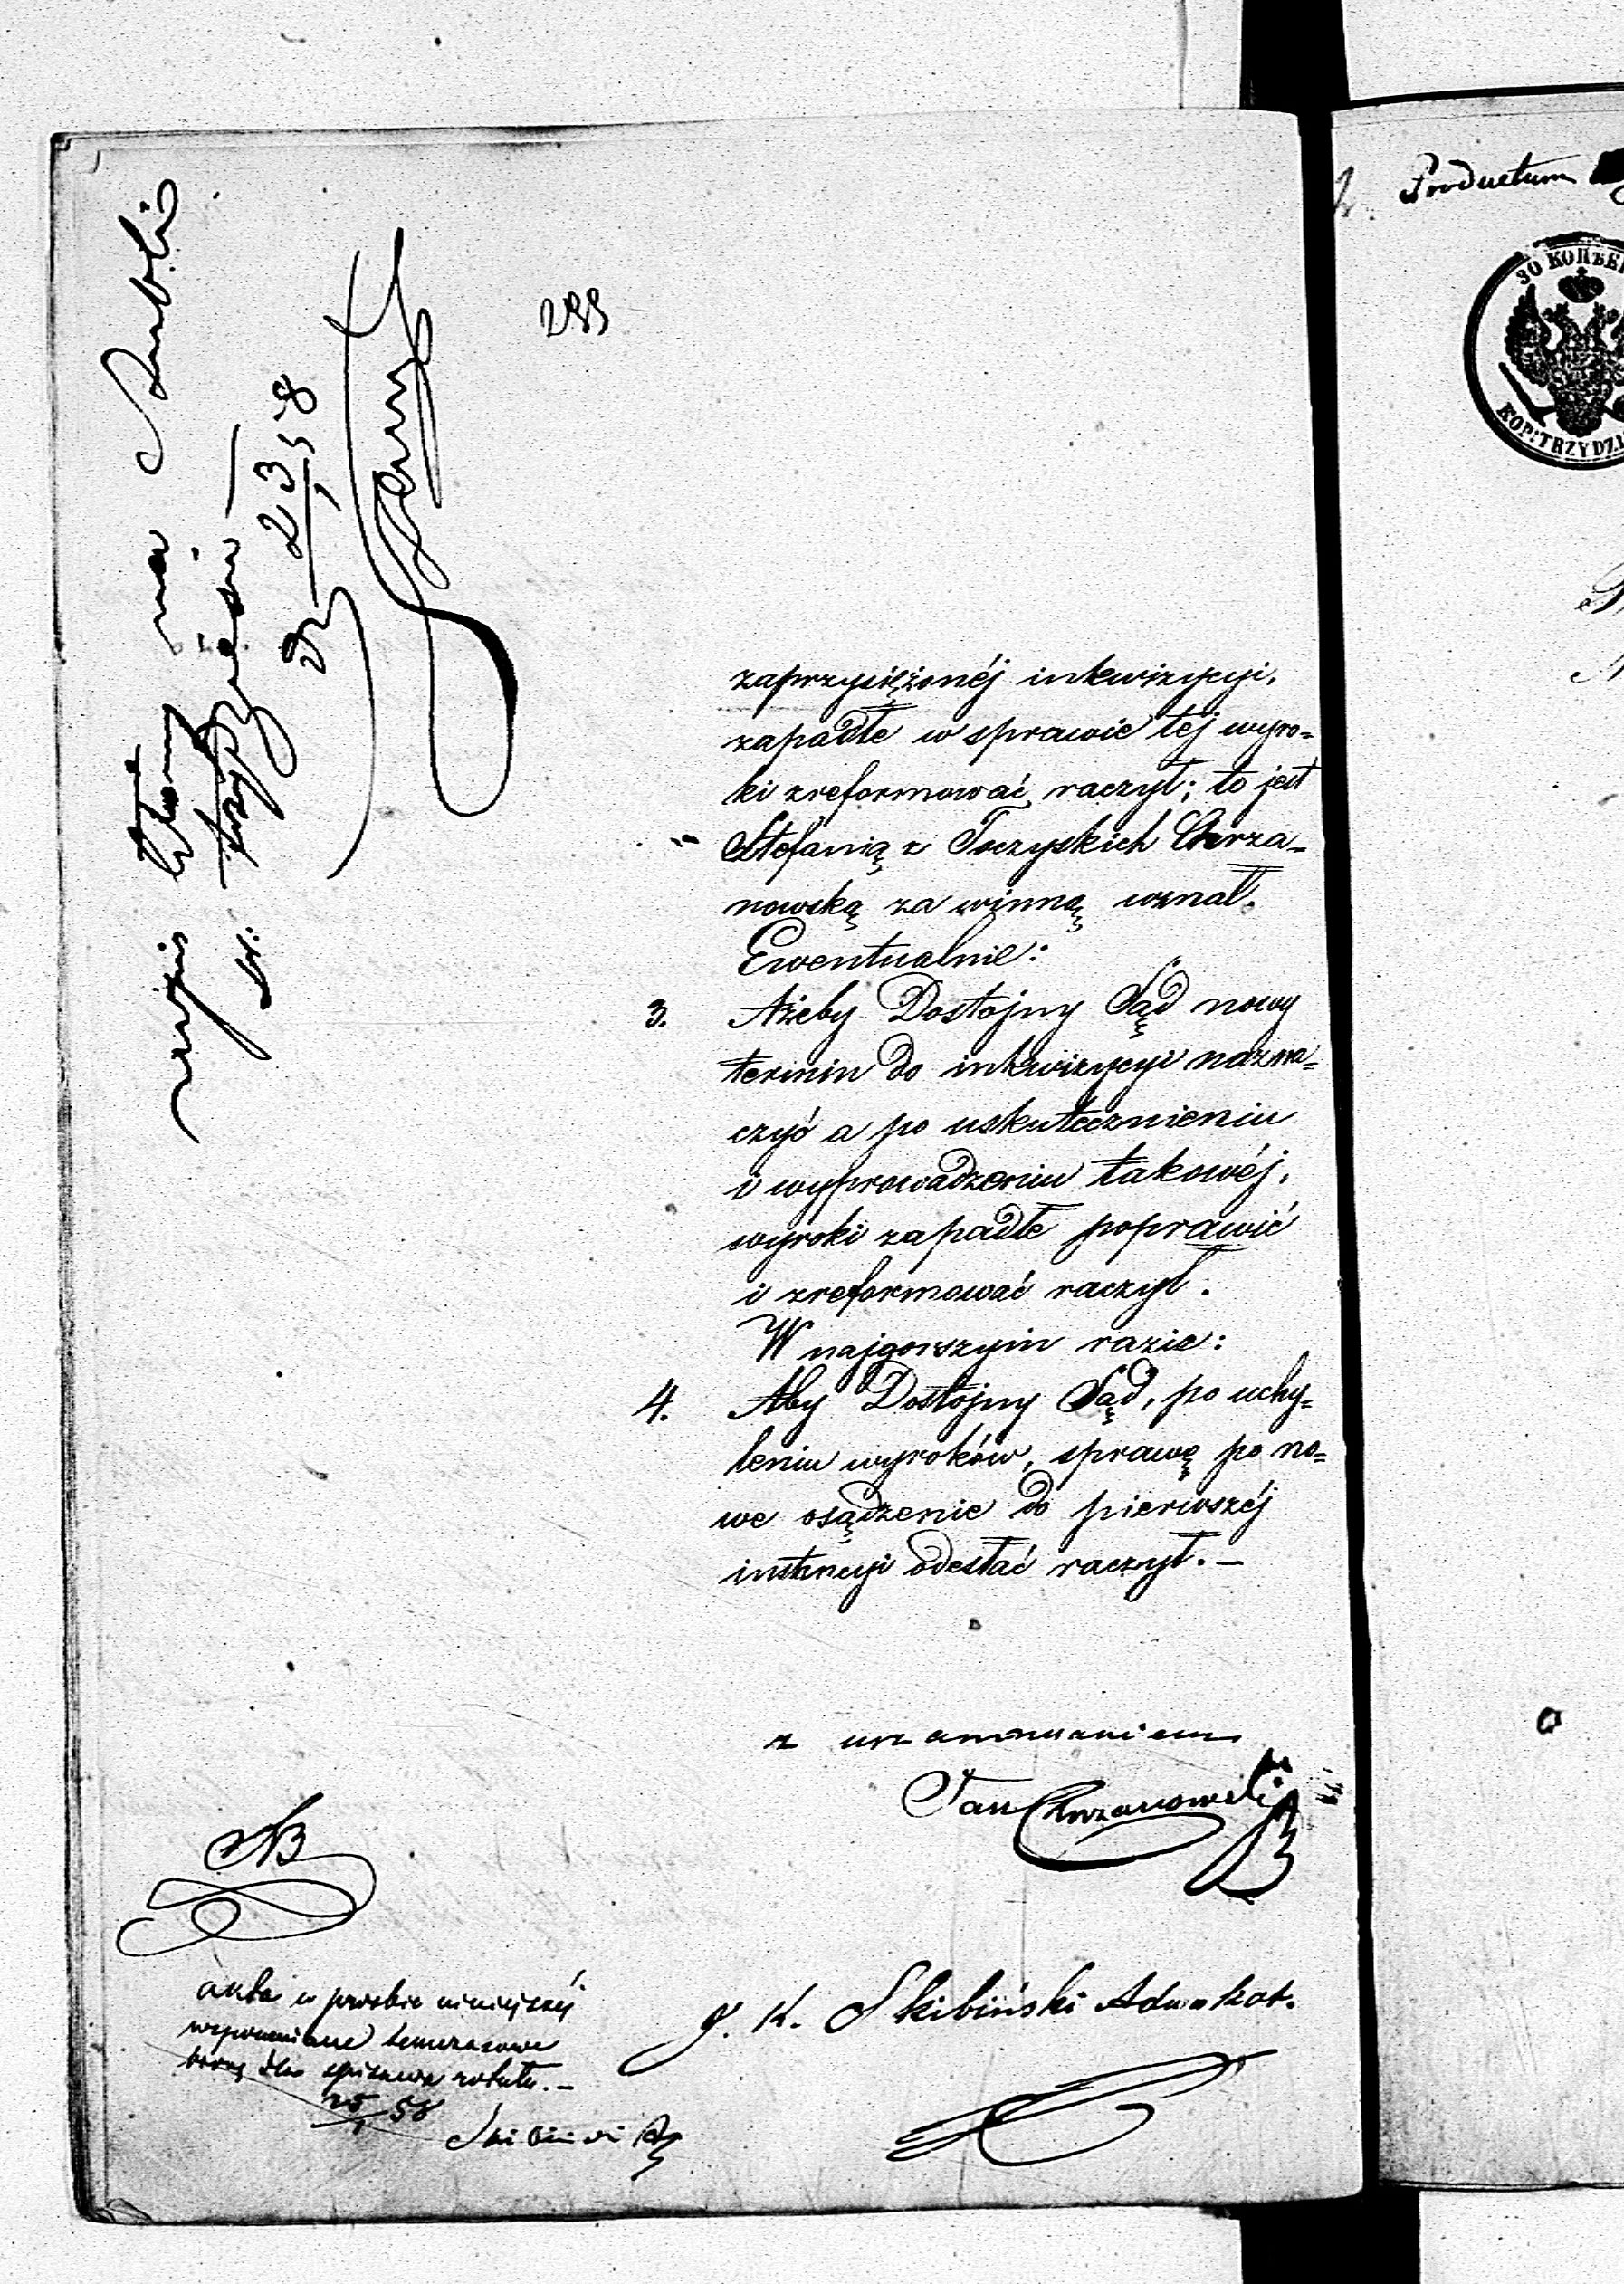 299
zaprzysiężonéj inkwizycyi,
zapadłe w sprawie téj wyro=
ki zreformować raczył; to jest
Stefanią z Toczyskich Chrza=
nowską za winną uznał.
Ewentualnie:
3. Ażeby Dostojny Sąd nowy
termin do inkwizycyi nazna=
czyć a po uskutecznieniu
i wyprowadzeniu takowéj,
wyroki zapadłe poprawić
i zreformować raczył.
W najgorszym razie:
4. Aby Dostojny Sąd, po uchy=
leniu wyroków, sprawę po no=
we osądzenie do pierwszéj
instancyi odesłać raczył. —
z uszanowaniem
Jan Chrzanowski
J. K. Skibiński Adwokat.
NB
akta w prośbie niniejszéj
wspomniane
biorę dla spisania rotułu. —
25/1 58
Skibiński
na
23/1 58
Productum
30 КОПѢЕ
КОР: TRZYDZI